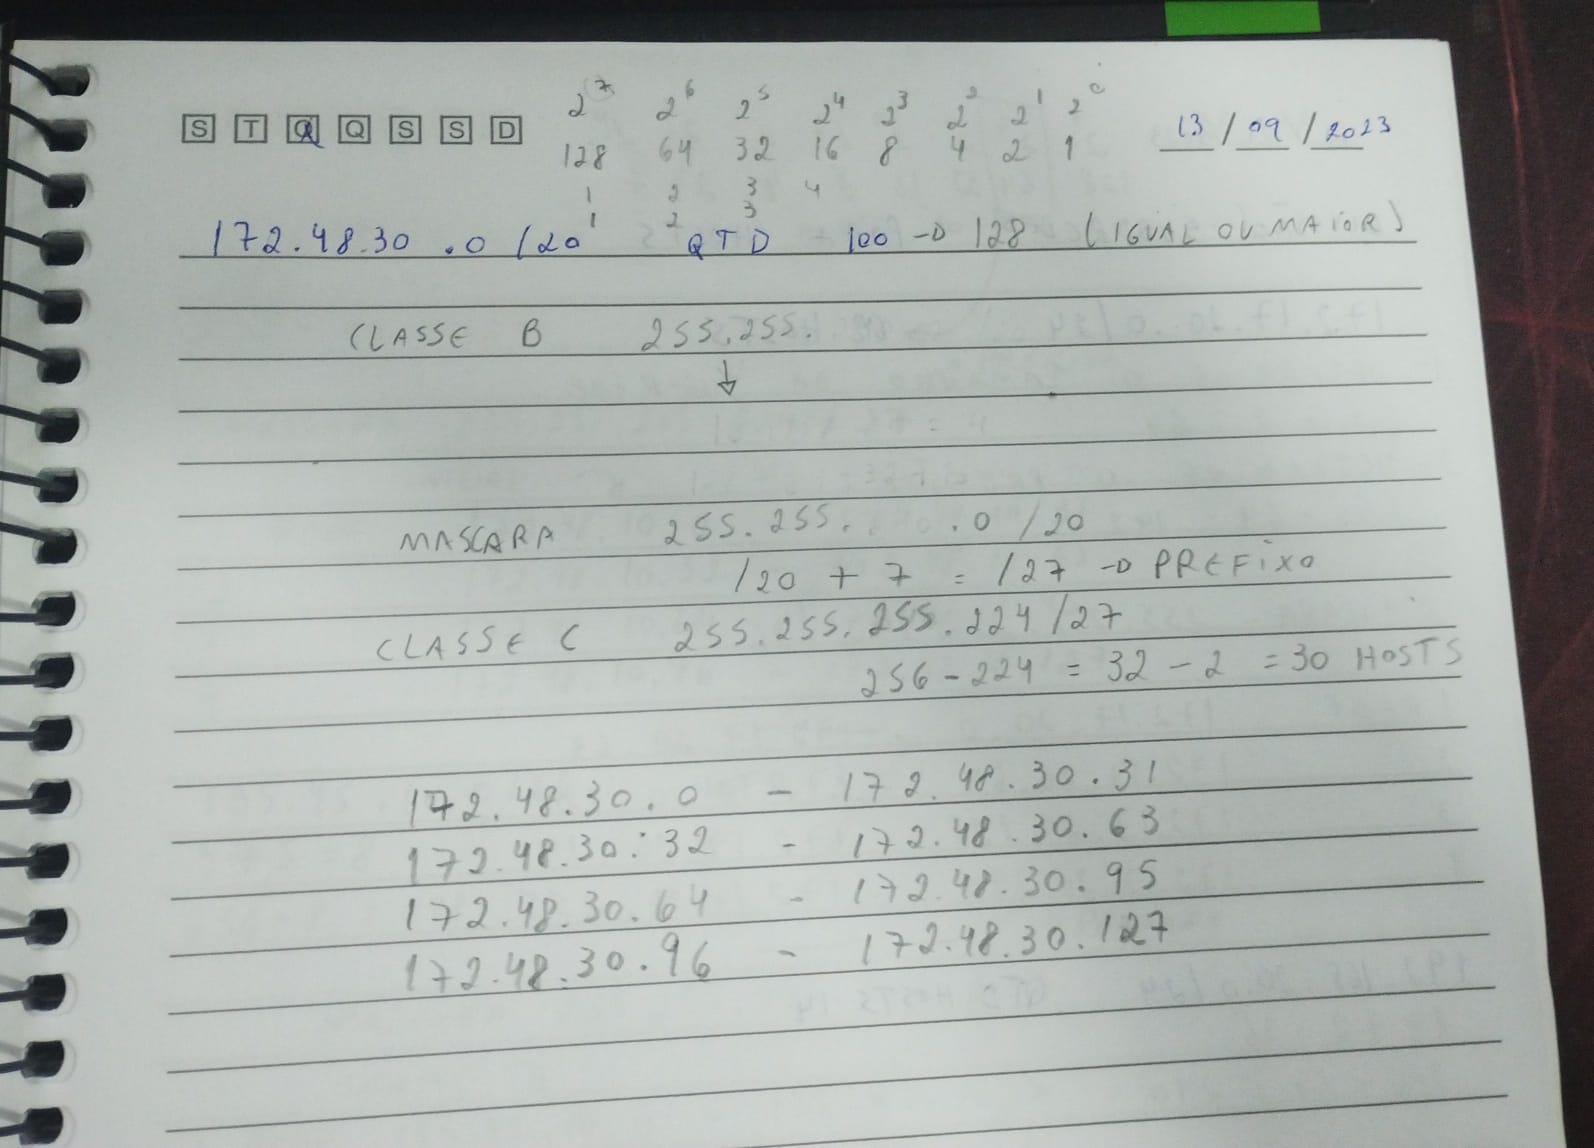 2⁷ 2⁶ 2⁵ 2⁴ 2³ 2² 2¹ 2⁰
S T Q Q S S D 128 64 32 16 8 4 2 1 13/09/2023
1 2 3 4
1 2 3
172.48.30.0/20 QTD 100 → 128 (IGUAL OU MAIOR)
CLASSE B 255.255.
↓
MASCARA 255.255. .0/20
/20 + 7 = /27 → PREFIXO
CLASSE C 255.255.255.224/27
256-224 = 32-2 = 30 HOSTS
172.48.30.0 - 172.48.30.31
172.48.30.32 - 172.48.30.63
172.48.30.64 - 172.48.30.95
172.48.30.96 - 172.48.30.127